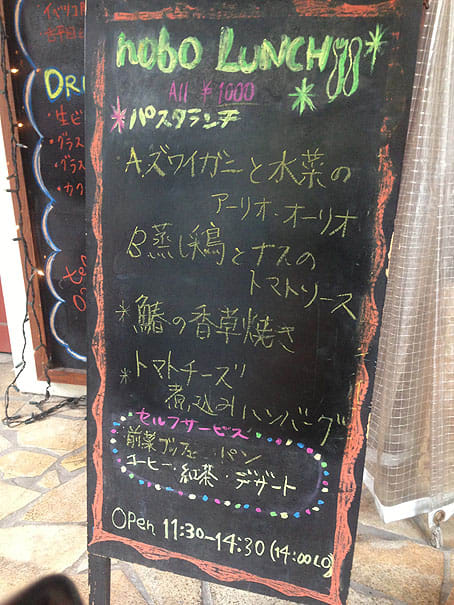 nobo LUNCH
All ¥1000
*パスタランチ
A.ズワイガニと水菜の
アーリオ・オーリオ
B蒸し鶏とナスの
トマトソース
*鰆の香草焼き
*トマトチーズ
煮込みハンバーグ
セルフサービス
前菜ブッフェ・パン
コーヒー・紅茶・デザート
Open 11:30-14:30 (14:00LO)
DRI
・生ビ
・グラス
・グラス
・カク